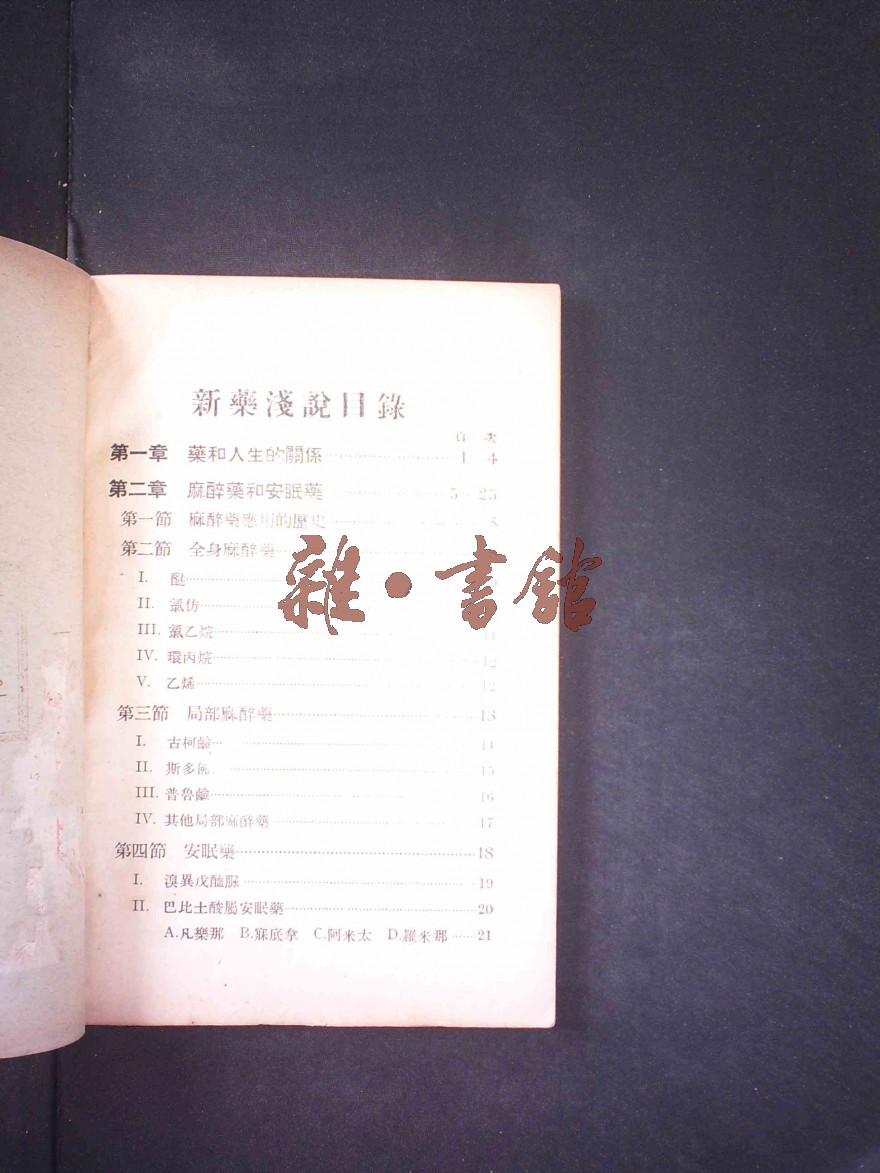 新藥淺說目錄
頁 次
第一章 藥和人生的關係 1 4
第二章 麻醉藥和安眠藥 5 - 25
第一節 麻醉藥應用的歷史 5
第二節 全身麻醉藥
I. 醚
II. 氯仿
III. 氯乙烷 11
IV. 環丙烷 12
V. 乙烯 12
第三節 局部麻醉藥 13
I. 古柯鹼 14
II. 斯多佛 15
III. 普魯鹼 16
IV. 其他局部麻醉藥 17
第四節 安眠藥 18
I. 溴異戊醯脲 19
II. 巴比土酸屬安眠藥 20
A.凡樂那 B.寐底拿 C.阿米太 D.羅米那 21
雜·書館